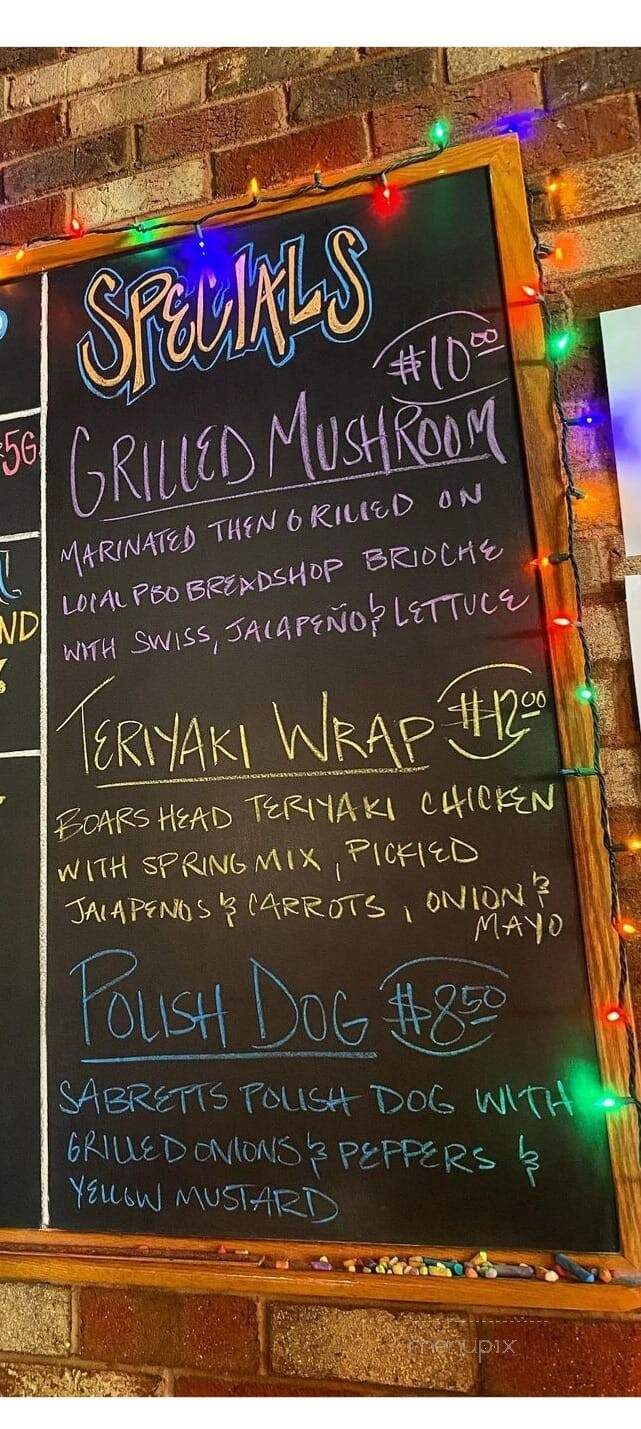 SPECIALS
$10.00
GRILLED MUSHROOM
MARINATED THEN GRILLED ON
LOCAL PBO BREADSHOP BRIOCHE
WITH SWISS, JALAPEÑO & LETTUCE
TERIYAKI WRAP $12.00
BOARS HEAD TERIYAKI CHICKEN
WITH SPRING MIX, PICKLED
JALAPENOS & CARROTS, ONION &
MAYO
POLISH DOG $8.50
SABRETTS POLISH DOG WITH
GRILLED ONIONS & PEPPERS &
YELLOW MUSTARD
5G
ND
menupix